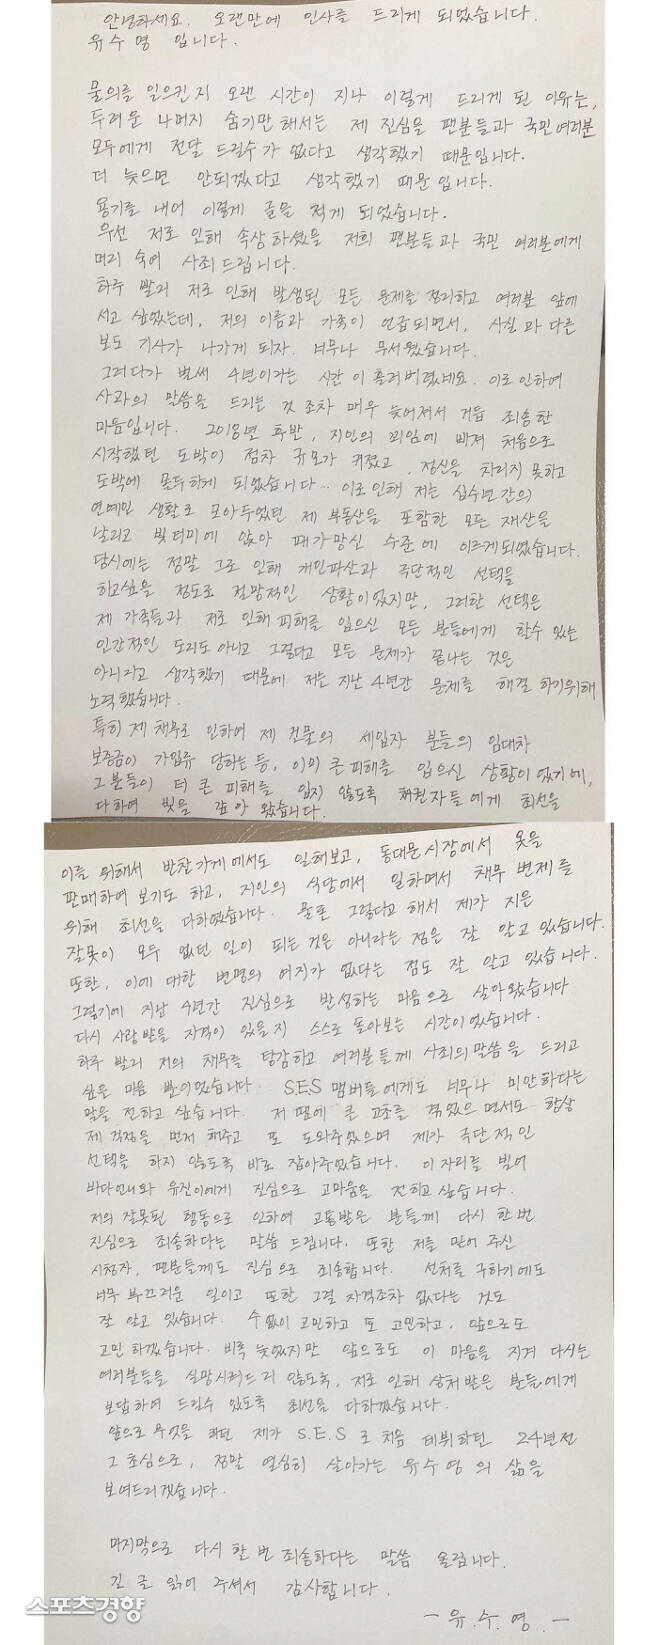 안녕하세요. 오랜만에 인사를 드리게 되었습니다.
유수영 입니다.
물의를 일으킨지 오랜 시간이 지나 이렇게 드리게 된 이유는,
두려운 나머지 숨기만 해서는 제 진심을 팬분들과 국민여러분
모두에게 전달 드릴수가 없다고 생각했기 때문입니다.
더 늦으면 안되겠다고 생각했기 때문입니다.
용기를 내어 이렇게 글을 적게 되었습니다.
우선 저로 인해 속상하셨을 저희 팬분들과 국민 여러분에게
머리 숙여 사죄드립니다.
하루 빨리 저로 인해 발생된 모든 문제를 정리하고 여러분 앞에
서고 싶었는데, 저의 이름과 가족이 언급되면서, 사실과 다른
보도 기사가 나가게 되자. 너무나 무서웠습니다.
그러다가 벌써 4년이라는 시간이 흘러버렸네요. 이로 인하여
사과의 말씀을 드리는 것 조차 매우 늦어져서 거듭 죄송한
마음입니다. 2018년 후반, 지인의 꾀임에 빠져 처음으로
시작했던 도박이 점차 규모가 커졌고, 정신을 차리지 못하고
도박에 몰두하게 되었습니다... 이로 인해 저는 십수년간의
연예인 생활로 모아두었던 제 부동산을 포함한 모든 재산을
날리고 빚더미에 앉아 패가망신 수준에 이르게 되었습니다.
당시에는 정말 그로 인해 개인파산과 극단적인 선택을
하고싶을 정도로 절망적인 상황이었지만, 그러한 선택은
제 가족들과 저로 인해 피해를 입으신 모든 분들에게 할수 있는
인간적인 도리도 아니고 그렇다고 모든 문제가 끝나는 것은
아니라고 생각했기 때문에 저는 지난 4년간 문제를 해결 하기위해
노력했습니다.
특히 제 채무로 인하여 제 건물의 세입자 분들의 임대차
보증금이 가압류 당하는 등, 이미 큰 피해를 입으신 상황이었기에,
그 분들이 더 큰 피해를 입지 않도록 채권자들에게 최선을
다하여 빚을 갚아 왔습니다.
이를 위해서 반찬가게에서도 일해보고, 동대문시장에서 옷을
판매하여 보기도 하고, 지인의 식당에서 일하면서 채무 변제를
위해 최선을 다하였습니다. 물론 그렇다고 해서 제가 지은
잘못이 모두 없던 일이 되는 것은 아니라는 점은 잘 알고 있습니다.
또한, 이에 대한 변명의 여지가 없다는 점도 잘 알고 있습니다.
그렇기에 지난 4년간 진심으로 반성하는 마음으로 살아왔습니다
다시 사랑받을 자격이 있을지 스스로 돌아보는 시간이었습니다.
하루 빨리 저의 채무를 탕감하고 여러분들께 사죄의 말씀을 드리고
싶은 마음 뿐이었습니다. S.E.S 맴버들에게도 너무나 미안하다는
말을 전하고 싶습니다. 저 땜에 큰 고초를 겪었으면서도 항상
제 걱정을 먼저 해주고 또 도와주었으며 제가 극단적인
선택을 하지 않도록 바로 잡아주었습니다. 이 자리를 빌어
바다언니와 유진이에게 진심으로 고마움을 전하고 싶습니다.
저의 잘못된 행동으로 인하여 고통받은 분들께 다시 한번
진심으로 죄송하다는 말씀 드립니다. 또한 저를 믿어 주신
시청자, 팬분들께도 진심으로 죄송합니다. 선처를 구하기에도
너무 부끄러운 일이고 또한 그럴 자격조차 없다는 것도
잘 알고 있습니다. 수없이 고민하고 또 고민하고, 앞으로도
고민 하겠습니다. 비록 늦었지만 앞으로도 이 마음을 지켜 다시는
여러분들을 실망시켜드리 않도록, 저로 인해 상처 받은 분들에게
보답하여 드릴수 있도록 최선을 다하겠습니다.
앞으로 무엇을 하던 제가 S.E.S 로 처음 데뷔하던 24년전
그 초심으로, 정말 열심히 살아가는 유수영의 삶을
보여드리겠습니다.
마지막으로 다시 한 번 죄송하다는 말씀 올립니다.
긴 글 읽어 주셔서 감사합니다.
- 유. 수. 영. -
스포츠경향